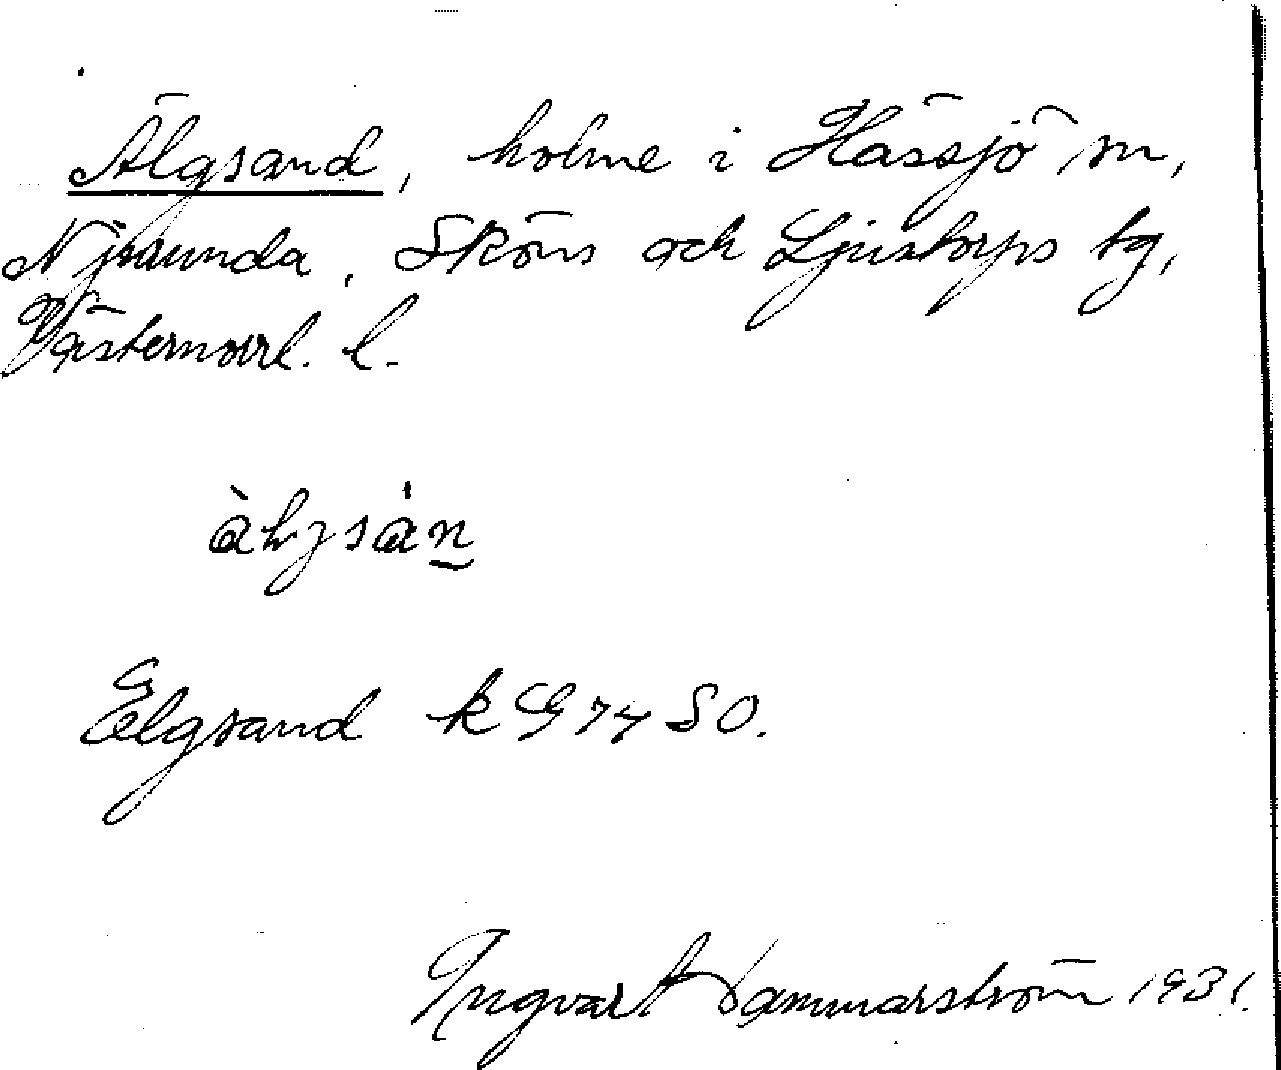 Älgsand, holme i Hässjö sn,
Njurunda, Sköns och Ljustorps tg,
Västernorrl. l.
àlgsán
Elgsand k G 74 SO.
Ingvart Hammarström 1931.